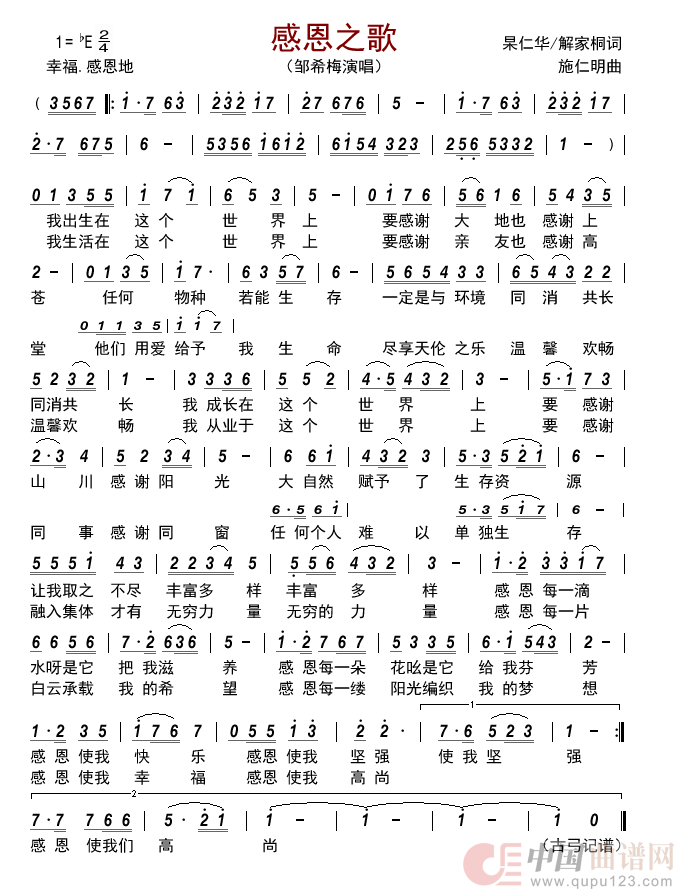 1=♭E 2/4 感恩之歌 杲仁华/解家桐词
幸福.感恩地 （邹希梅演唱） 施仁明曲
( 3567 |: 1·7 63 | 232 17 | 27 176 | 5 – | 1·7 63 | 232 17 |
2·7 675 | 6 – | 5356 1612 | 6154 323 | 256 5332 | 1 – ) |
01 355 | 1 7 1 | 6 5 3 | 5 – | 01 76 | 561 16 | 54 35 |
我出生在 这个 世界上 要感谢 大地也 感谢上
我生活在 这个 世界上 要感谢 亲友也 感谢高
2 – | 01 35 | 17· | 63 57 | 65 433 | 6543 22 |
苍 任何 物种 若能生存 一定是与 环境 同消共长
0135 117
堂 他们 用爱 给予 我生命 尽享天伦 之乐 温馨欢畅
52 32 | 1 – | 3 336 | 5 5 | 4·5 432 | 3 – | 5·1 73 |
同消共长 我 成长在 这个 世界上 要感谢
温馨欢畅 我 从业于 这个 世界上 要感谢
2·3 4 | 52 34 | 5 – | 6 61 | 4 3 2 | 3·5 521 | 6 – |
山川 感谢阳光 大自然 赋予了 生存资源
6·5 61 5·355
同事 感谢同窗 任何个人 难以 单独生存
5551 43 | 2234 5 | 356 432 | 3 – | 1·2 331 |
让我取之 不尽 丰富多样 丰富多样 感恩每一滴
融入集体 才有 无穷力量 无穷的力量 感恩每一片
6656 52 | 7·2 636 | 5 – | 1·2 766 | 5335 35 | 6·1 543 | 2 – |
水呀是它 把我滋养 感恩每一朵 花吆是它 给我芬芳
白云承载 我的希望 感恩每一缕 阳光编织 我的梦想
1
1·2 35 | 176 7 | 055 13 | 2 2· | 7·6 523 | 1 – :|
感恩使我 快乐 感恩使我 坚强 使我坚强
感恩使我 幸福 感恩使我 高尚
2
7·7 766 | 5· 21 | 1 – | 1 – | 1 – | 1 0 |
感恩 使我们 高尚 （古弓记谱）
中国曲谱网
www.qupu123.com